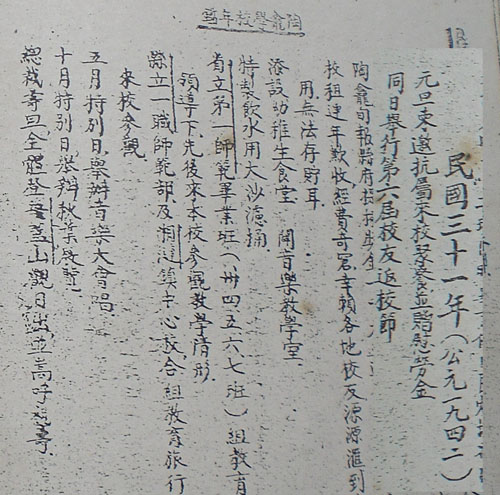 陶龕學校年
民國三十一年（公元一九四二）
元旦柬邀抗屬來校聚餐並贈慰勞金
同日舉行第六屆校友返校節
陶龕旬報
校租連年歉收經費奇窘幸賴各地校友源源滙到
用無法存貯耳
添設幼稚生食堂 開音樂教學室
特製飲水用大沙濾桶
省立第一師範畢業班（卅四五六七班）組教育
領導下先後來本校參觀教學情形
縣立一職師範部及湘鄉簡中心校合組教育旅行
來校參觀
五月特別日舉辦音樂大會唱
十月特別日舉辦秋葉展覽
總裁壽旦全體登山觀日出並高呼祝壽